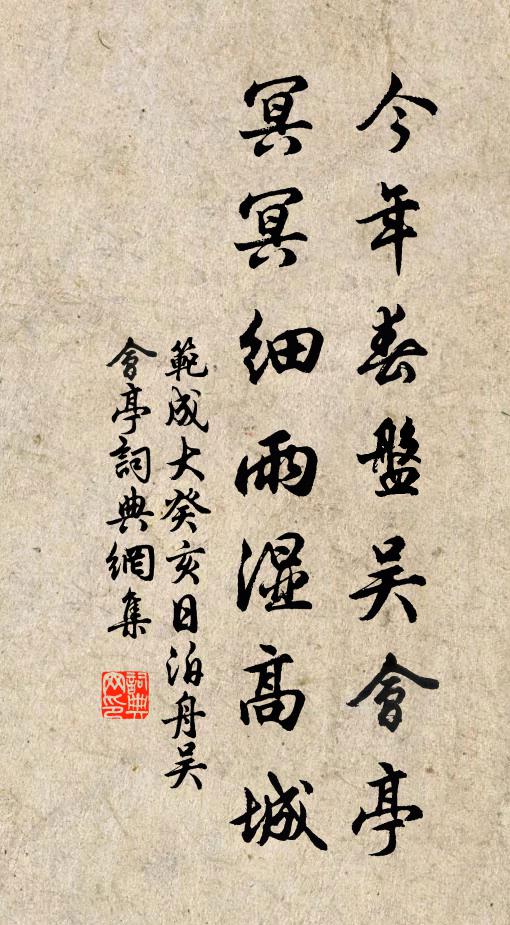 今年春盤吴會亭
冥冥细雨湿高城
範成大癸亥日泊舟吴
會亭詞典網集
詞典
网印